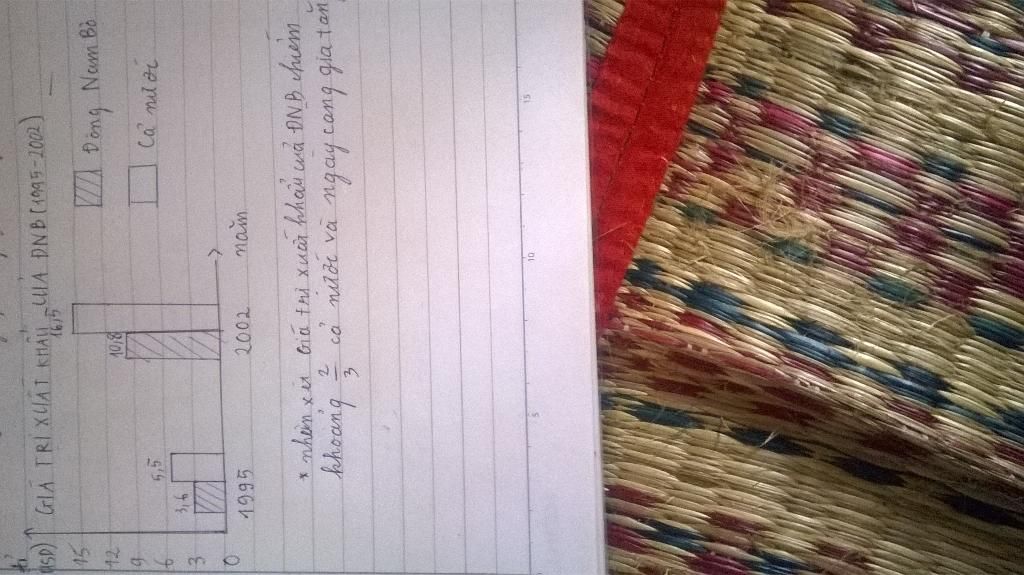 tỉ
USD)
GIÁ TRỊ XUẤT KHẨU CỦA ĐNB (1995-2002)
15
12
9
6
3
0
3,6
5,5
10,8
16,5
1995
2002
năm
Đông Nam Bộ
Cả nước
* nhận xét Giá trị xuất khẩu của ĐNB chiếm
khoảng 2/3 cả nước và ngày càng gia tăng
5
10
15